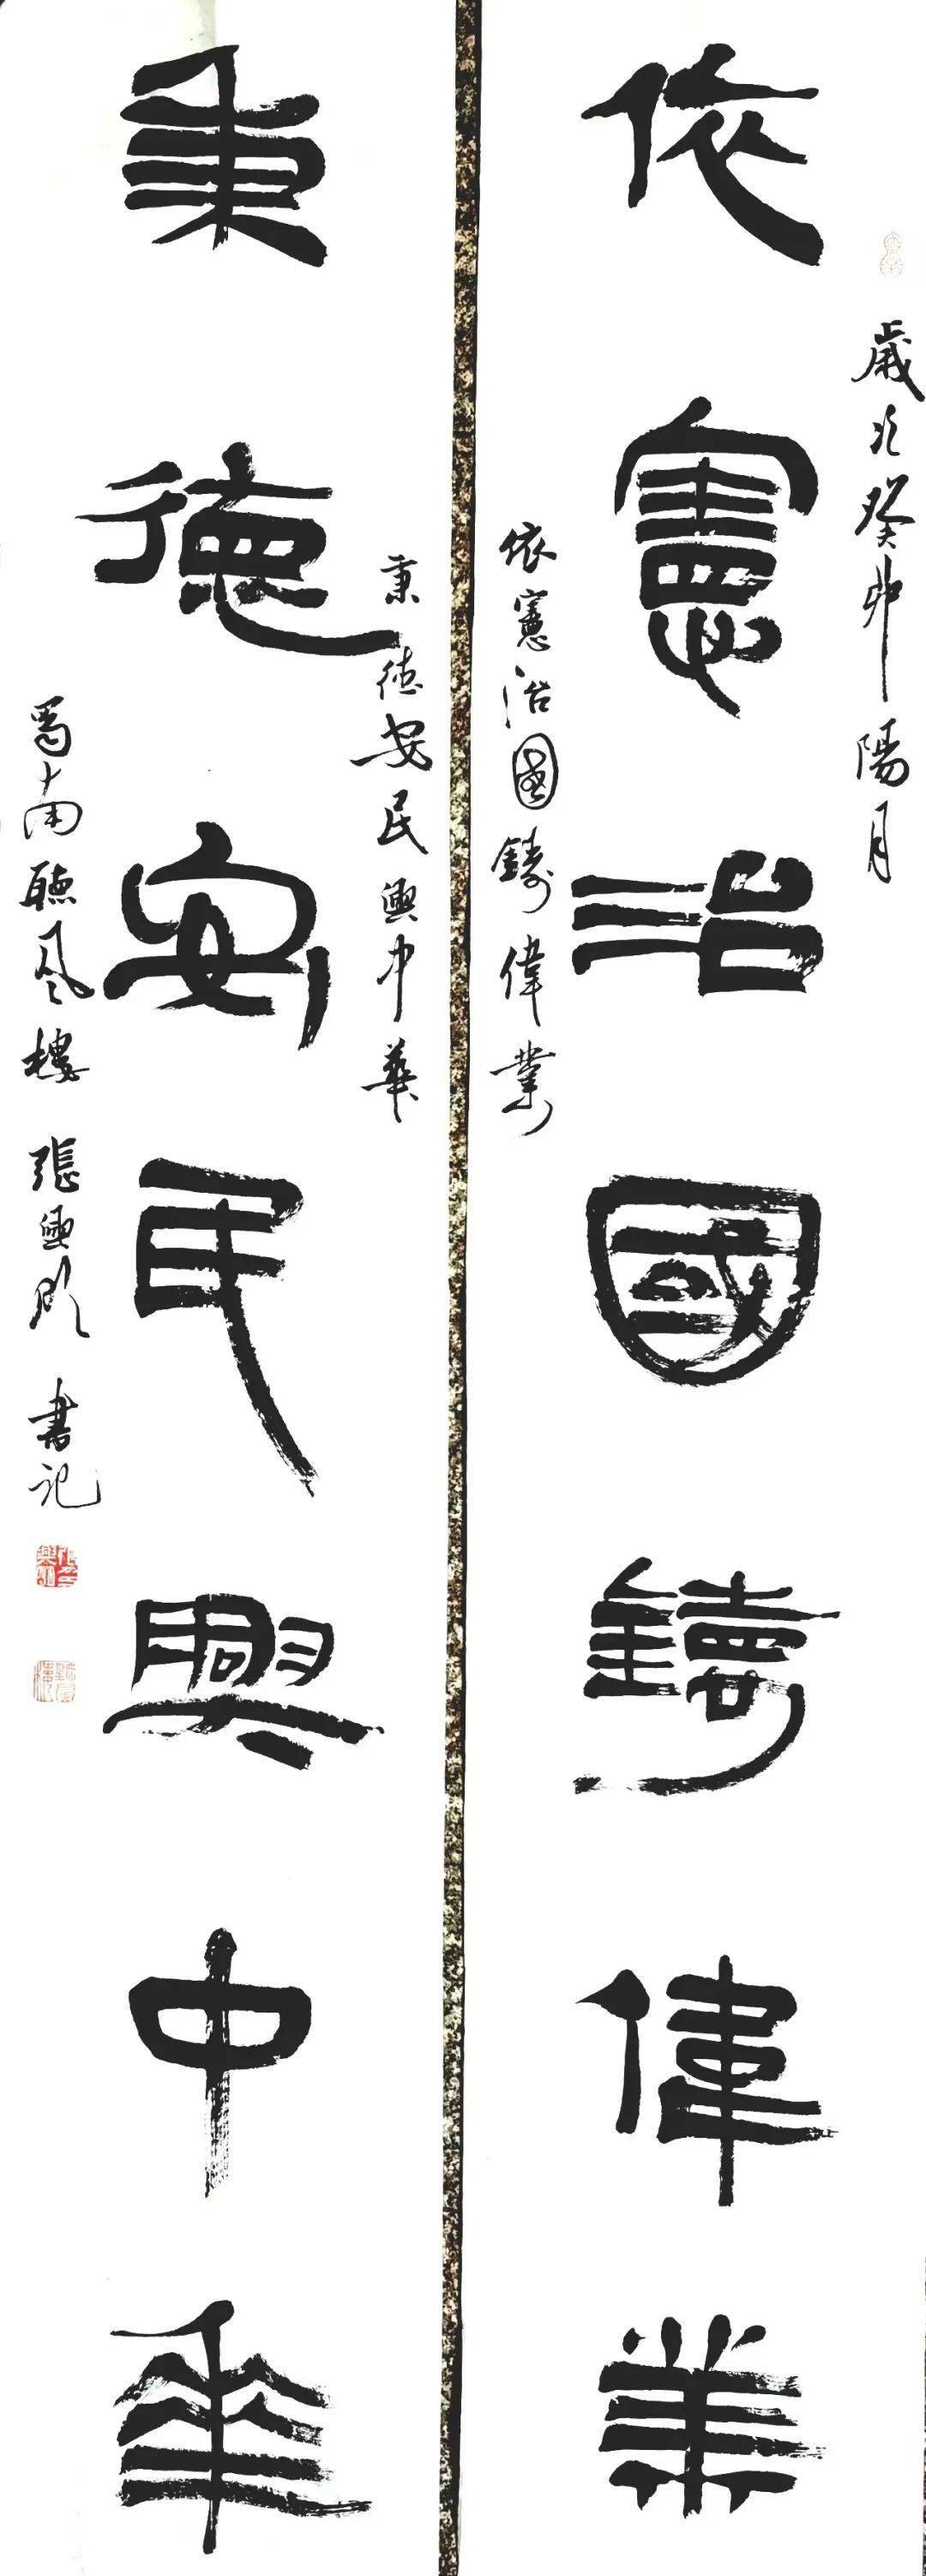 歲次癸卯陽月
依憲治國鑄偉業
依憲治國鑄偉業
秉德安民興中華
秉德安民興中華
蜀南聽風樓 張興 書記